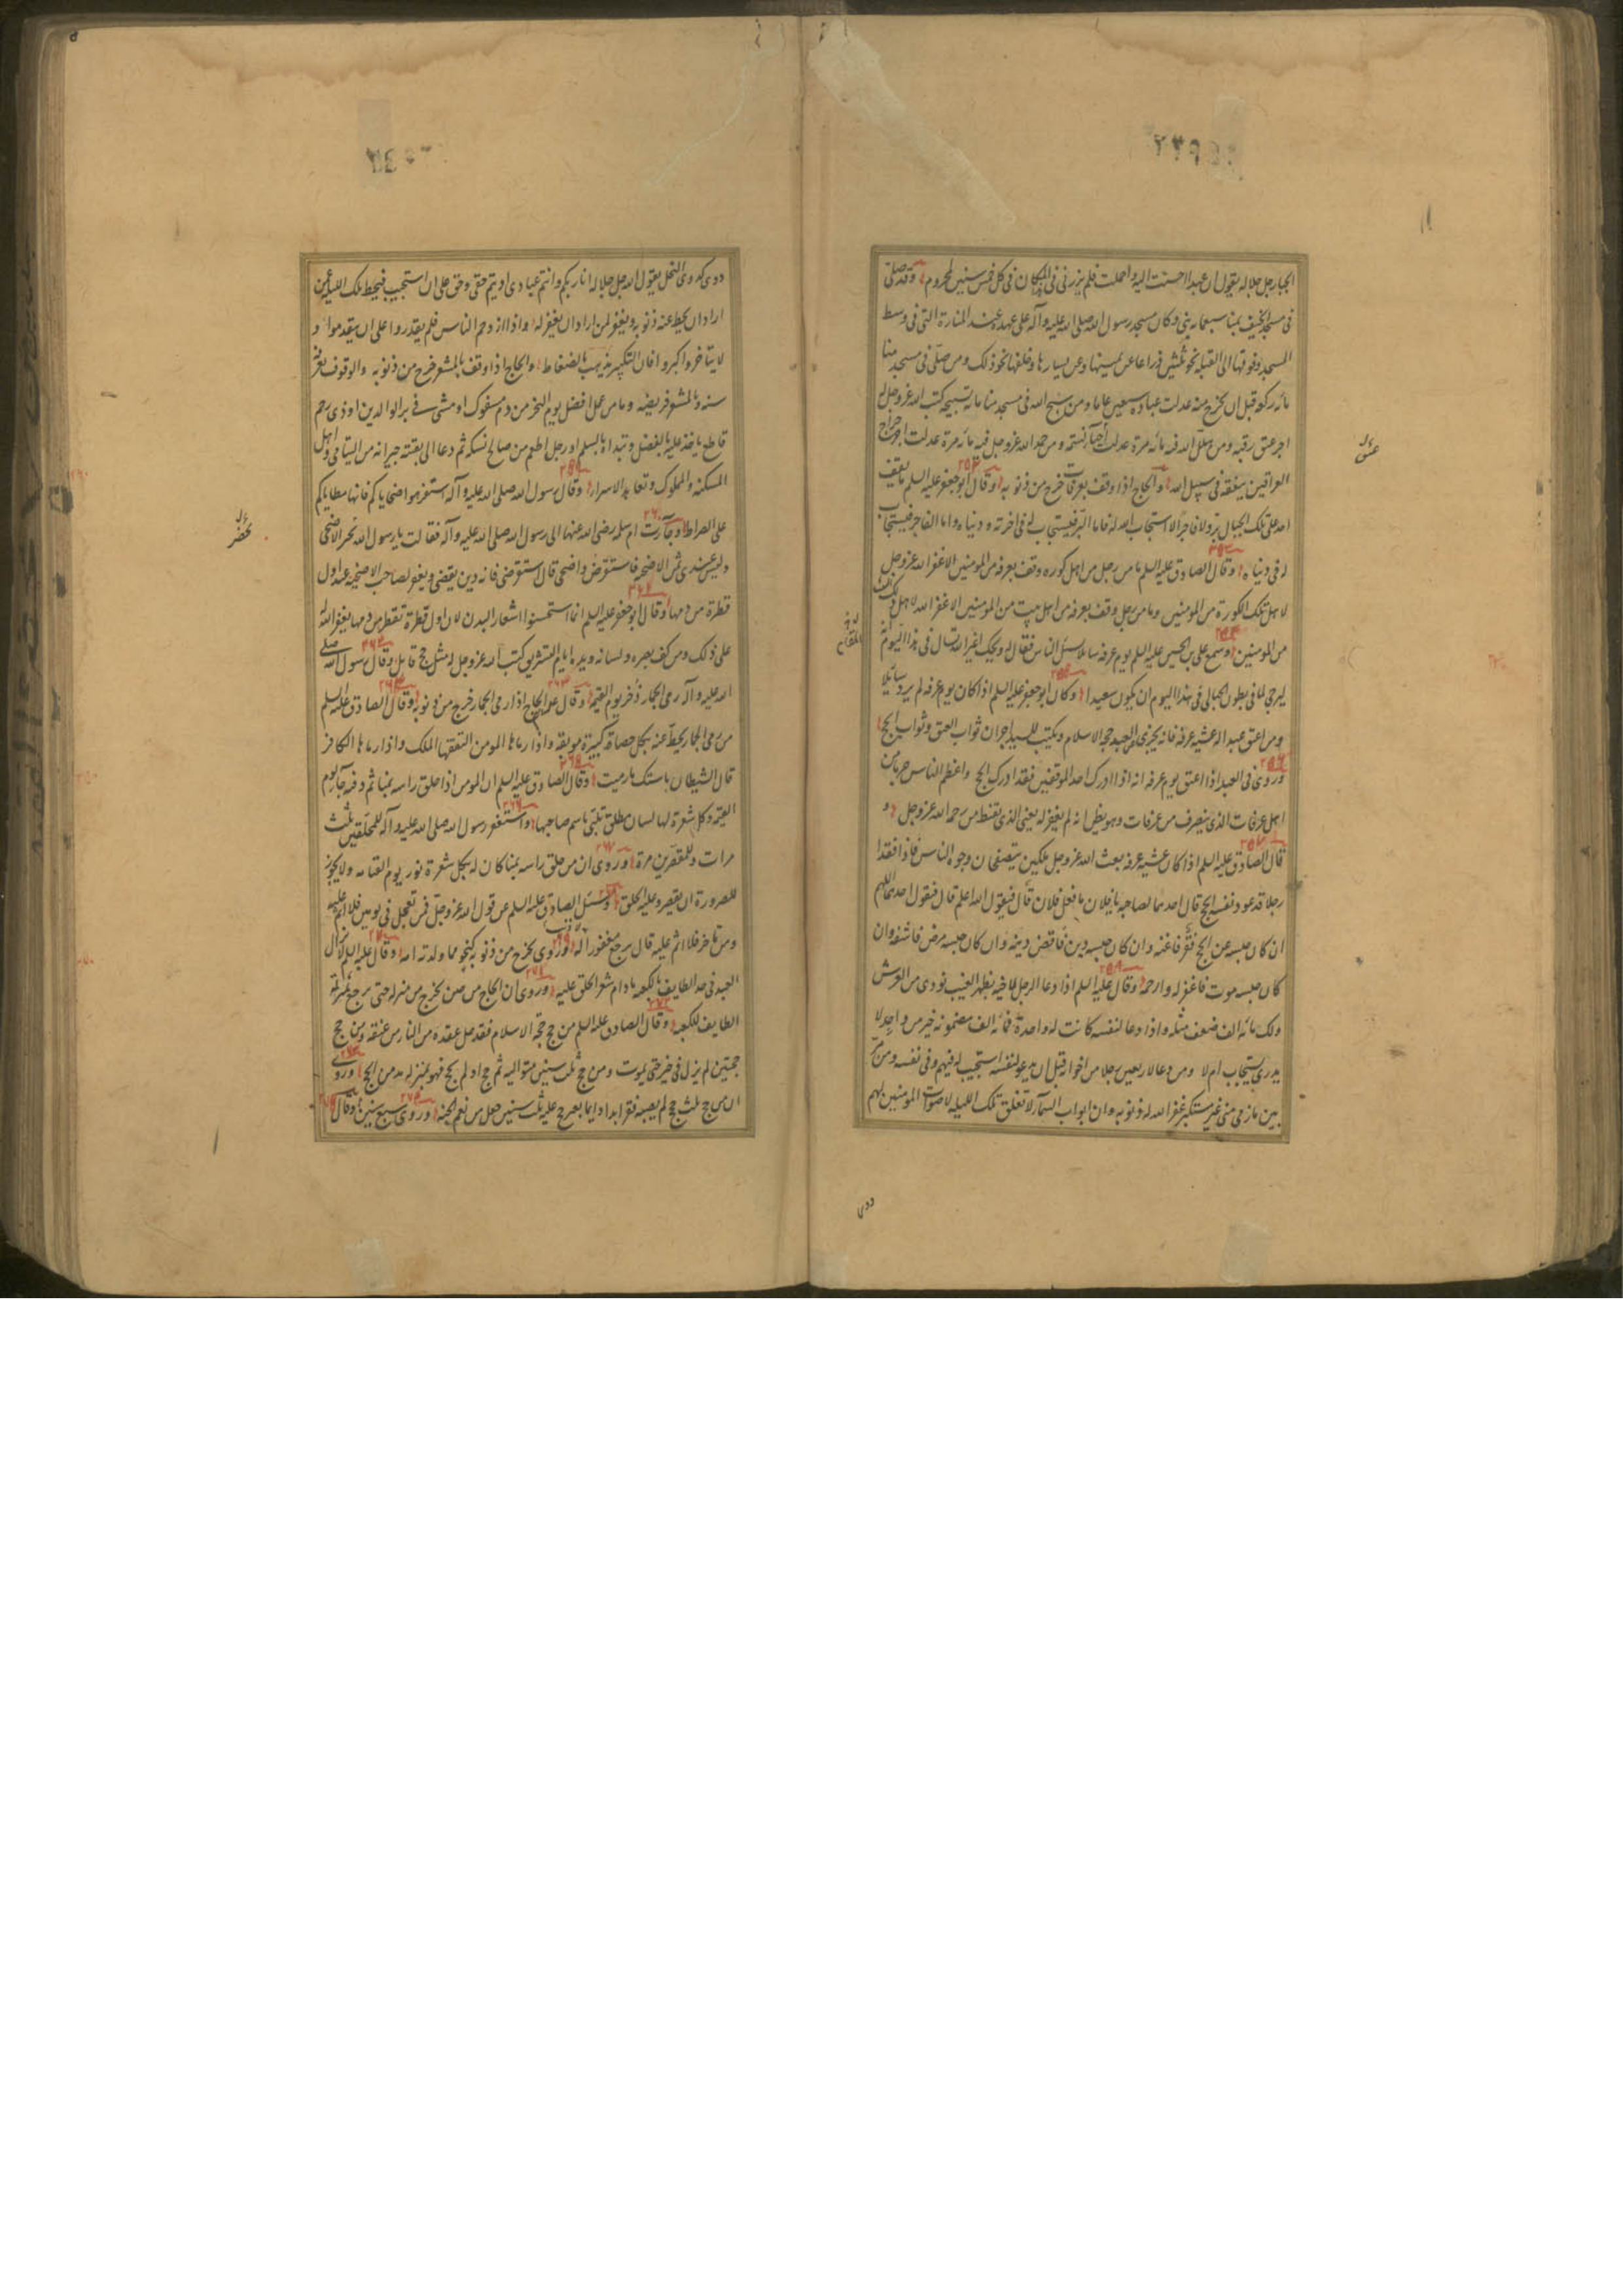 الجبار جل جلاله يقول ان عبدا احسنت اليه واجملت فلم يزرنى فى هذا المكان فى كل خمس سنين لمحروم وقد صلى
فى مسجد الخيف بمنا سبعمايه نبى وكان مسجد رسول الله صلى الله عليه وآله على عهده عند المنارة التى فى وسط
المسجد وفوقها الى القبله نحو ثلثين ذراعا عن يمينها وعن يسارها وخلفها نحو ذلك ومن صلى فى مسجد منا
مائه ركعه قبل ان يخرج منه عدلت عباده سبعين عاما ومن سبح الله فى مسجد منا مائه تسبيحه كتب الله عز وجل له
اجر عتق رقبه ومن هلل الله فيه مائه مرة عدلت احيآء نسمه ومن حمد الله عز وجل فيه مائه مرة عدلت اجر خراج
العراقين ينفقه فى سبيل الله والحاج اذا وقف بعرفات خرج من ذنوبه وقال ابو جعفر عليه السلم ما يقف
احد على تلك الجبال بر ولا فاجر الا استجاب الله له فاما البر فيستجاب له فى اخرته ودنياه واما الفاجر فيستجاب
له فى دنياه وقال الصادق عليه السلم ما من رجل من اهل كوره وقف بعرفه من المومنين الا غفر الله عز وجل
لاهل تلك الكورة من المومنين وما من رجل وقف بعرفه من اهل بيت من المومنين الا غفر الله لاهل ذلك البيت
من المومنين وسمع على بن الحسين عليه السلم يوم عرفه سايلا يسئل الناس فقال له ويحك اغير الله تسال فى هذا اليوم انه
ليرجى لما فى بطون الحبالى فى هذا اليوم ان يكون سعيدا وكان ابو جعفر عليه السلم اذا كان يوم عرفه لم يرد سائلا
ومن اعتق عبدا له عشيه عرفه فانه يجزى عن العبد حجه الاسلام ويكتب للسيد اجران ثواب العتق وثواب الحج
وروى فى العبد اذا اعتق يوم عرفه انه اذا ادرك احد الموقفين فقد ادرك الحج واعظم الناس جرما من
اهل عرفات الذى ينصرف من عرفات وهو يظن انه لم يغفر له يعنى الذى يقنط من رحمه الله عز وجل و
قال الصادق عليه السلم اذا كان عشيه عرفه بعث الله عز وجل ملكين يتصفحان وجوه الناس فاذا فقدا
رجلا قد عود نفسه الحج قال احدهما لصاحبه يا فلان ما فعل فلان قال فيقول الله اعلم قال فيقول احدهما اللهم
ان كان حبسه عن الحج فقر فاغنه وان كان حبسه دين فاقض دينه وان كان حبسه مرض فاشفه وان
كان حبسه موت فاغفر له وارحمه وقال عليه السلم اذا دعا الرجل لاخيه بظهر الغيب نودى من العرش
ولك مائه الف ضعف مثله واذا دعا لنفسه كانت له واحدة فمائه الف مضمونه خير من واحد لا
يدرى يستجاب ام لا ومن دعا لاربعين رجلا من اخوانه قبل ان يدعو لنفسه استجيب له فيهم وفى نفسه ومن مر
بين مازمى منى غير مستكبر غفر الله له ذنوبه وان ابواب السمآء لا تغلق تلك الليله لاصوات المومنين لهم
دوى
دوى كدوى النحل يقول الله جل جلاله انا ربكم وانتم عبادى اديتم حقى وحق على ان استجيب فيحط تلك الليلة عمن
اراد ان يحط عنه ذنوبه ويغفر لمن اراد ان يغفر له واذا ازدحم الناس فلم يقدروا على ان يتقدموا و
لا يتاخروا كبروا فان التكبير يذهب بالضغاط والحاج اذا وقف بالمشعر خرج من ذنوبه والوقوف بعرفه
سنه وبالمشعر فريضه وما من عمل افضل يوم النحر من دم مسفوك او مشى فى بر الوالدين او ذى رحم
قاطع ياخذ عليه بالفضل ويبداه بالسلم او رجل اطعم من صالح نسكه ثم دعا الى بقيته جيرانه من اليتامى واهل
المسكنه والمملوك وتعاهد الاسراء وقال رسول الله صلى الله عليه وآله استفرهوا ضحاياكم فانها مطاياكم
على الصراط وجآءت ام سلمه رضى الله عنها الى رسول الله صلى الله عليه وآله فقالت يا رسول الله يحضر الاضحى
وليس عندى ثمن الاضحيه فاستقرض واضحى قال استقرضى فانه دين يقضى ويغفر لصاحب الاضحيه عند اول
قطرة من دمها وقال ابو جعفر عليه السلم انما استحسنوا اشعار البدن لان اول قطرة تقطر من دمها يغفر الله له
على ذلك ومن كف بصره ولسانه ويده ايام التشريق كتب الله عز وجل له مثل حج قابل وقال رسول الله صلى
الله عليه وآله رمى الجمار ذخر يوم القيمه وقال عليه السلم الحاج اذا رمى الجمار خرج من ذنوبه وقال الصادق عليه السلم
من رمى الجمار يحط عنه بكل حصاة كبيرة موبقه واذا رماها المومن التقفها الملك واذا رماها الكافر
قال الشيطان باستك ما رميت وقال الصادق عليه السلم ان المومن اذا حلق راسه بمنا ثم دفنه جآء يوم
القيمه وكل شعرة لها لسان مطلق تلبى باسم صاحبها واستغفر رسول الله صلى الله عليه وآله للمحلقين ثلث
مرات وللمقصرين مرة وروى ان من حلق راسه بمنا كان له بكل شعرة نور يوم القيامه ولا يجوز
للصرورة ان يقصر وعليه الحلق وسئل الصادق عليه السلم عن قول الله عز وجل فمن تعجل فى يومين فلا اثم عليه
ومن تاخر فلا اثم عليه قال يرجع مغفورا له وروى يخرج من ذنوبه كنحو مما ولدته امه وقال عليه السلم لا يزال
العبد فى حد الطايف بالكعبه ما دام شعر الحلق عليه وروى ان الحاج من حين يخرج من منزله حتى يرجع بمنزله
الطايف بالكعبه وقال الصادق عليه السلم من حج حجه الاسلام فقد حل عقده من النار من عنقه ومن حج
حجتين لم يزل فى خير حتى يموت ومن حج ثلث سنين متواليه ثم حج او لم يحج فهو بمنزله مدمن الحج وروى
ان من حج ثلث حجج لم يصبه فقر ابدا وايما بعير حج عليه ثلث سنين جعل من نعم الجنه وروى سبع سنين وقال